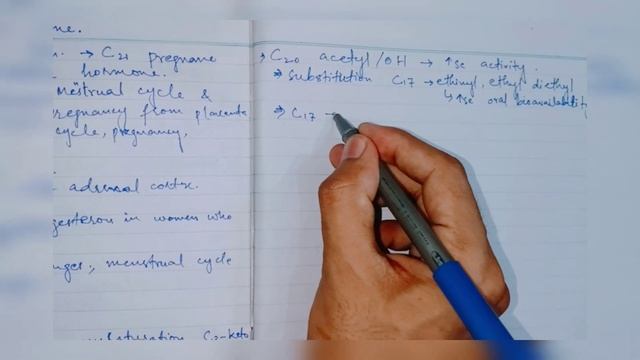 ne.
n. → C21 pregnane
hormone.
Mestrual cycle &
regnancy from placenta
cycle, pregnancy,
adrenal cortex.
gesteron in women who
nges, menstrual cycle
C3-keto
⇒ C20 acetyl/OH → ↑se activity.
⇒ Substitution C17 → ethinyl, ethyl diethyl
↳ ↑se oral bioavailability
⇒ C17 →